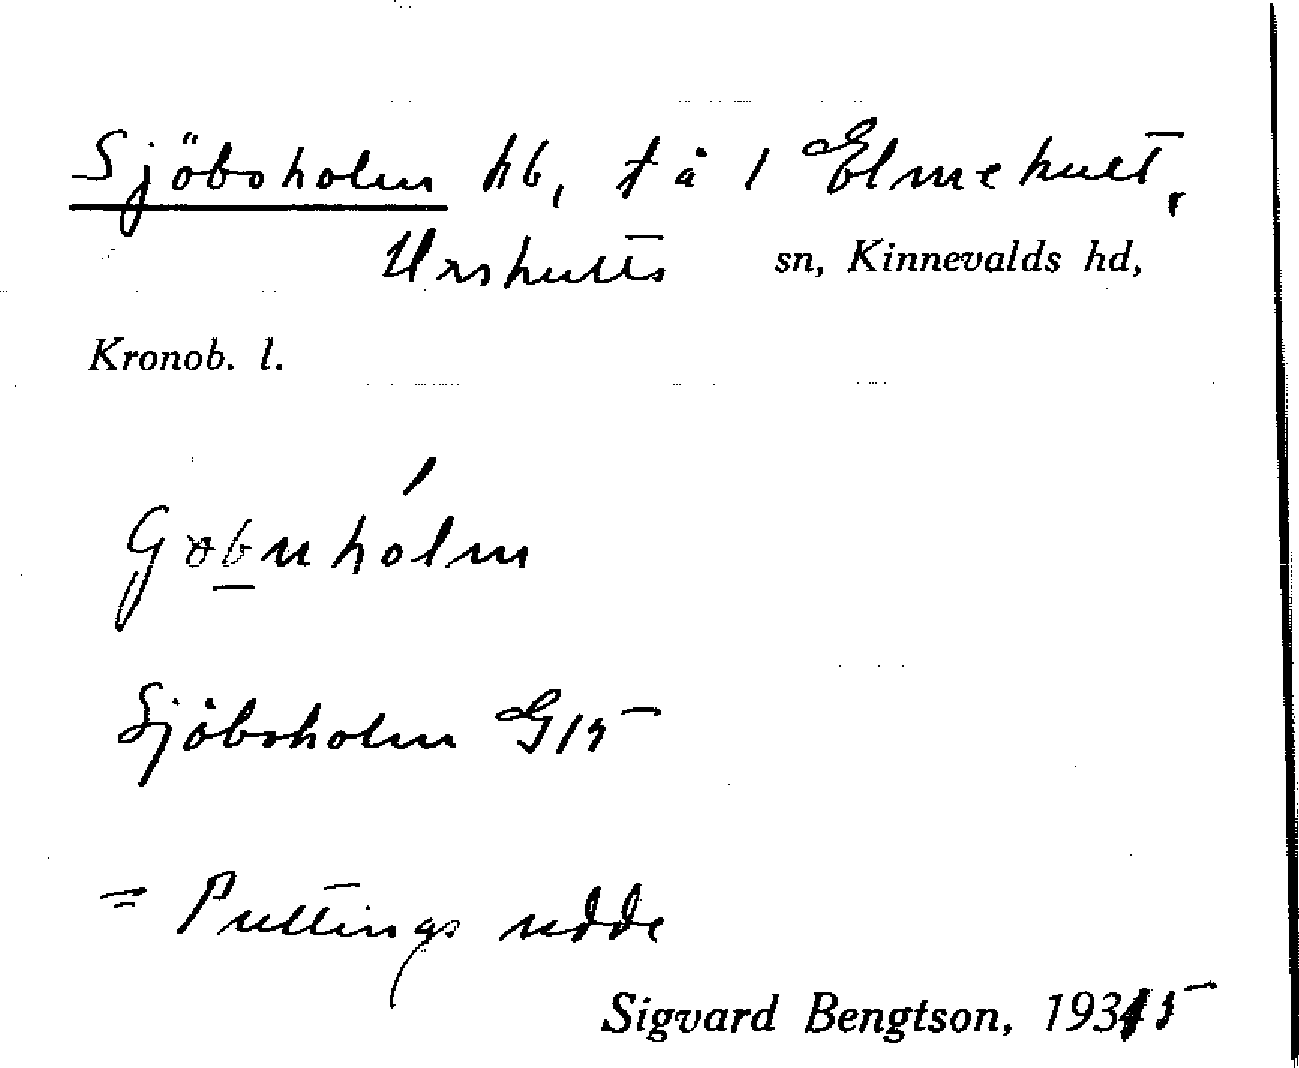 Sjöboholm hb, på 1 Elmehult,
Urshults sn, Kinnevalds hd,
Kronob. l.
Sjöboholm G15
= Puttings udde
Sigvard Bengtson, 1935